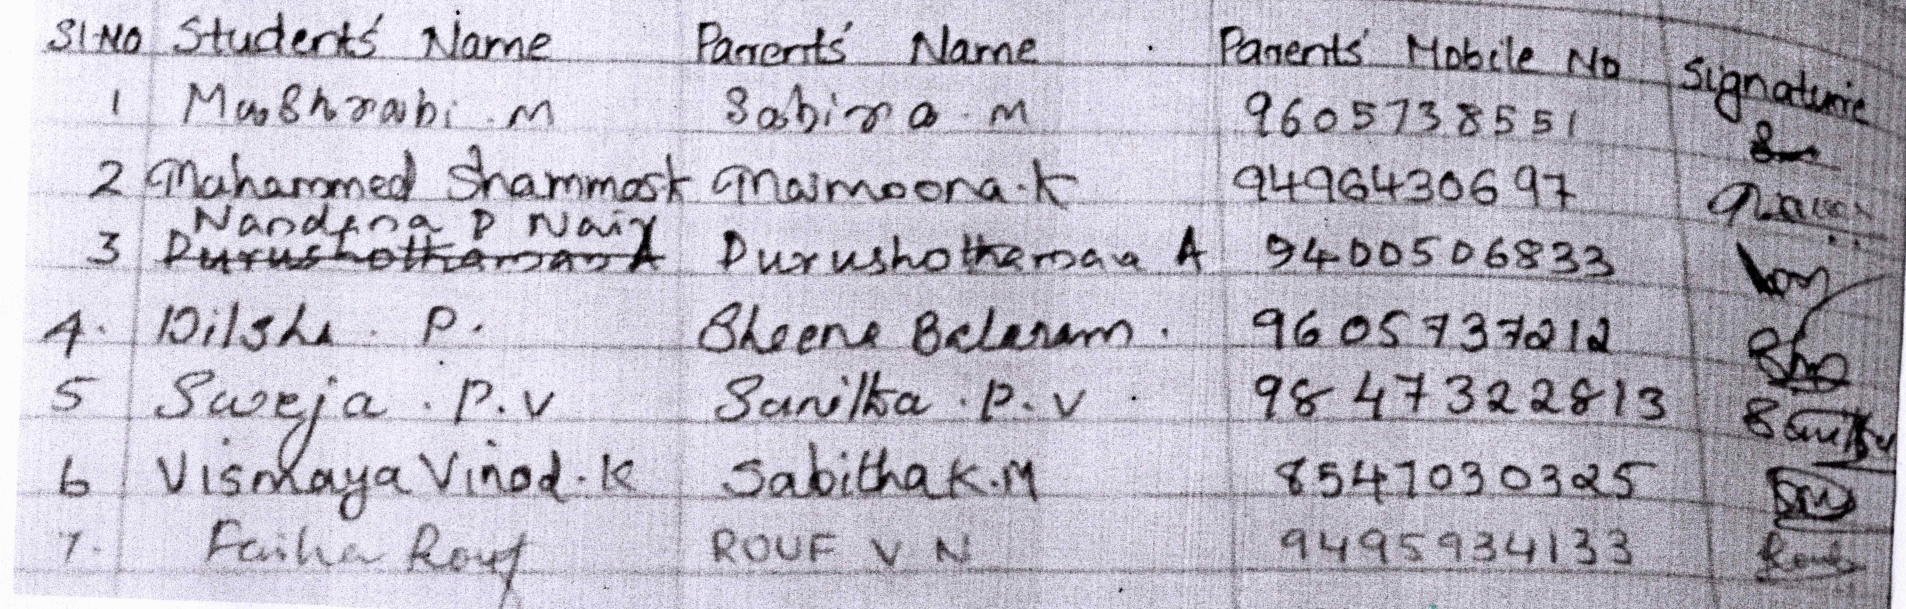 Sl.No Students' Name Parents' Name Parents' Mobile No Signature
1 Mashrabi . M Sabira . M 9605738551
2 Mahammed Shammask Maimoona.K 9496430697
Nandana P Nair
3 Purushothaman A Purushothaman A 9400506833
4. Dilsha . P. Sheena Balaram . 9605737212
5 Sweja . P.V Sunitha . P.V . 9847322813
6 Vismaya Vinod.K Sabitha K.M 8547030325
7. Faiha Rouf ROUF V N 9495934133 Rouf